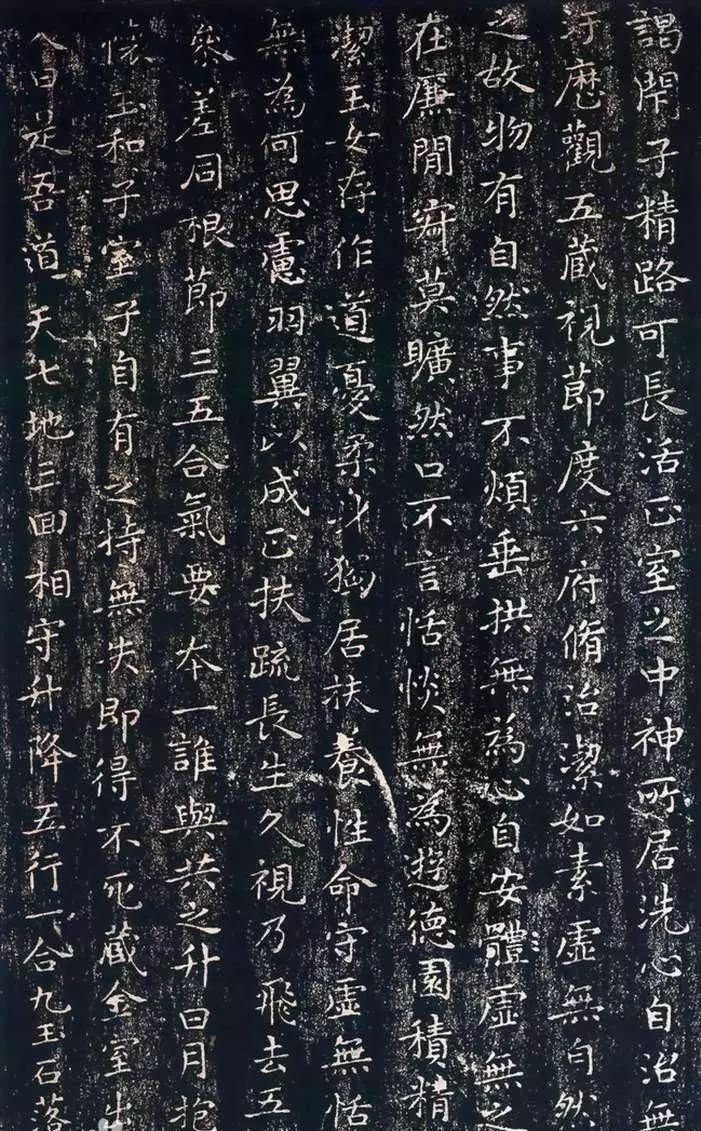 謁閇子精路可長活正室之中神所居洗心自治無
汙歷觀五藏視節度六府脩治潔如素虛無自然
之故物有自然事不煩垂拱無為心自安體虛無之
在廉間寂莫曠然口不言恬惔無為遊德園積精
潔玉女存作道憂柔身獨居扶養性命守虛無恬
無為何思慮羽翼以成正扶疏長生久視乃飛去五
參差同根節三五合氣要本一誰與共之升日月抱
懷玉和子室子自有之持無失即得不死藏金室出
日是吾道天七地三回相守升降五行一合九玉石落